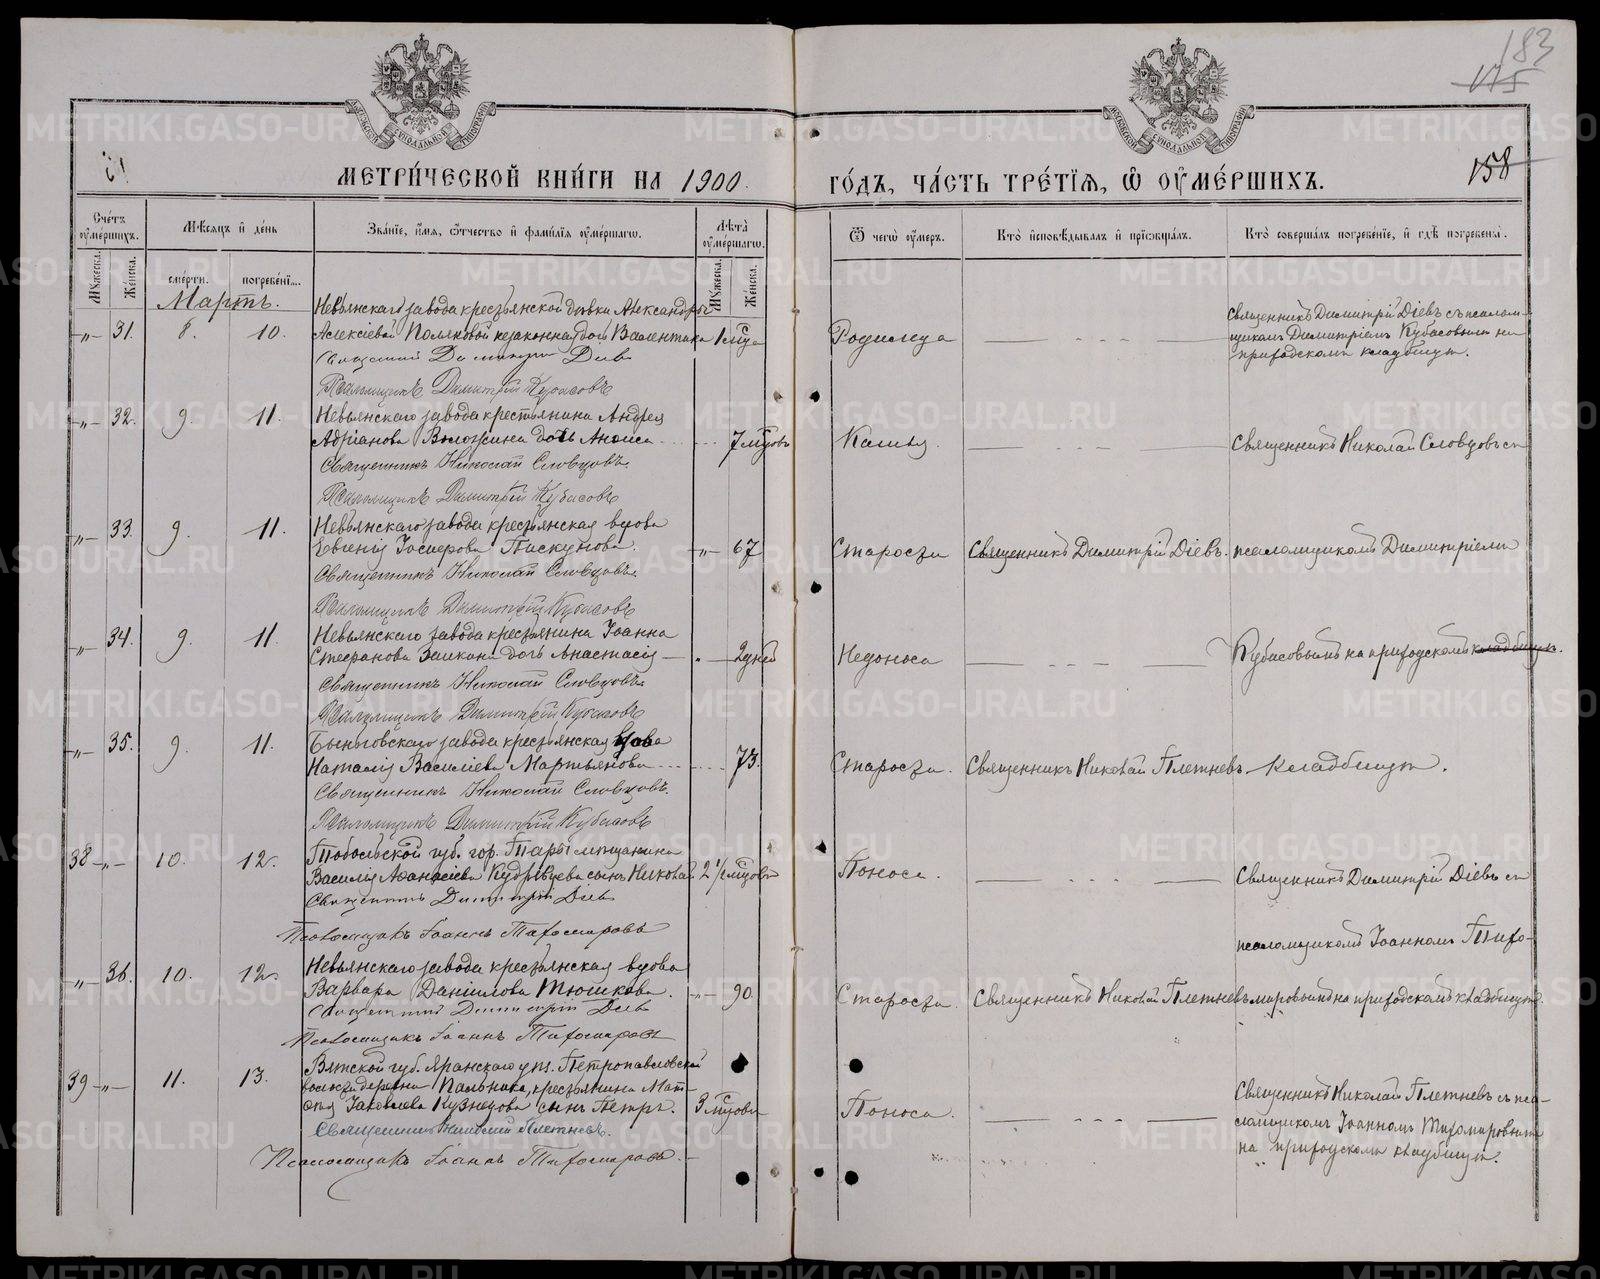 183
175
158
МЕТРИ́ЧЕСКОЙ КНИ́ГИ НА 1900.
ГО́ДЪ, ЧА́СТЬ ТРЕ́ТІѦ, Ѽ ОУ҆МЕ́РШИХЪ.
Сче́тъ оу҆ме́ршихъ.
Мꙋ́жеска.
Же́нска.
Мѣ́сяцъ и҆ де́нь
сме́рти.
погребе́нї...
Зва́нїе, и҆́мѧ, ѻ҆́тчество и҆ фами́лїѧ оу҆ме́ршагѡ.
Лѣ́та оу҆ме́ршагѡ.
Мꙋ́жеска.
Же́нска.
Ѿ чегѡ̀ оу҆́меръ.
Кто̀ и҆сповѣ́дывалъ и҆ прїѡбща́лъ.
Кто̀ соверша́лъ погребе́нїе, и҆ гдѣ̀ погребены̀.
Мартъ.
-"- 31. 8. 10.
Невьянскаго завода крестьянской дѣвки Александры
Алексіевой Поляковой незаконная дочь Валентина 1 мѣсяца
Священникъ Димитрій Діевъ
Псаломщикъ Димитрій Кубасовъ
Родимца
Священникъ Димитрій Діевъ съ псалом-
щикомъ Димитріемъ Кубасовымъ на
приходскомъ кладбищѣ.
-"- 32. 9. 11.
Невьянскаго завода крестьянина Андрея
Адріанова Воложина дочь Анѳиса 7 мѣсяцовъ
Священникъ Николай Словцовъ.
Псаломщикъ Димитрій Кубасовъ
Кашля.
Священникъ Николай Словцовъ съ
-"- 33. 9. 11.
Невьянскаго завода крестьянская вдова
Евгенія Іосифова Пискунова. -"- 67
Священникъ Николай Словцовъ.
Псаломщикъ Димитрій Кубасовъ
Старости
Священникъ Димитрій Діевъ.
псаломщикомъ Димитріемъ
-"- 34. 9. 11.
Невьянскаго завода крестьянина Іоанна
Стефанова Заикина дочь Анастасія 2 дней
Священникъ Николай Словцовъ
Псаломщикъ Димитрій Кубасовъ
Недоноса
Кубасовымъ на приходскомъ кладбищѣ.
-"- 35. 9. 11.
Быньговскаго завода крестьянская вдова
Наталія Василіева Мартьянова 73.
Священникъ Николай Словцовъ.
Псаломщикъ Димитрій Кубасовъ
Старости.
Священникъ Николай Плетневъ
кладбищѣ.
38 -"- 10. 12.
Тобольской губ. гор. Тары мѣщанина
Василія Аѳанасіева Кудрявцева сынъ Николай 2 1/2 мѣсяцовъ
Священникъ Димитрій Діевъ
Псаломщикъ Іоаннъ Тихомировъ
Поноса.
Священникъ Димитрій Діевъ съ
псаломщикомъ Іоанномъ Тихо-
-"- 36. 10. 12.
Невьянскаго завода крестьянская вдова
Варвара Даніилова Тюшкова. -"- 90.
Священникъ Димитрій Діевъ
Псаломщикъ Іоаннъ Тихомировъ
Старости.
Священникъ Николай Плетневъ
мировымъ на приходскомъ кладбищѣ.
39 -"- 11. 13.
Вятской губ. Яранскаго у. Петропавловской
волости деревни Пальника, крестьянина Мат-
ѳея Іаковлева Кузнецова сынъ Петръ. 3 мѣсяцовъ
Священникъ Николай Плетневъ.
Псаломщикъ Іоаннъ Тихомировъ.
Поноса.
Священникъ Николай Плетневъ съ пса-
ломщикомъ Іоанномъ Тихомировымъ
на приходскомъ кладбищѣ.
METRIKI.GASO-URAL.RU